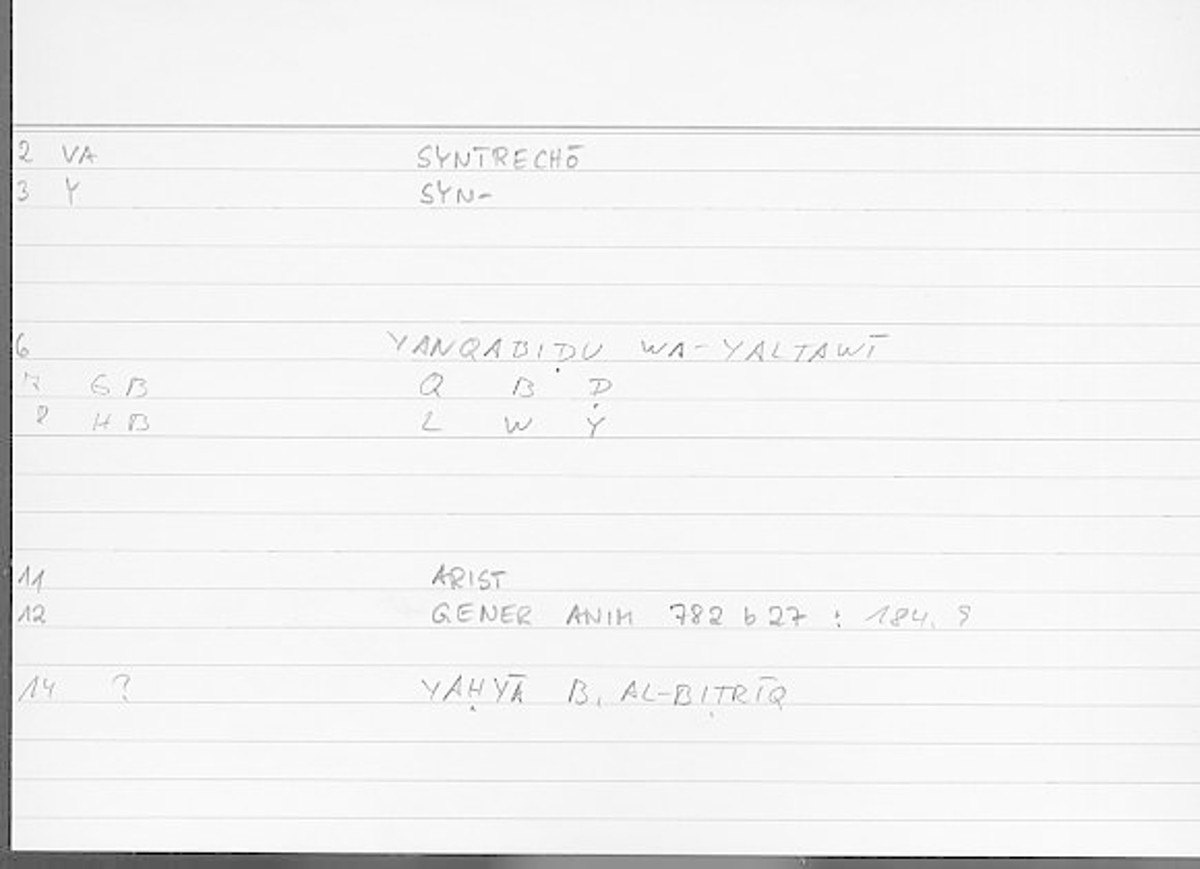 2 VA SYNTRECHŌ
3 Y SYN-
6 YANQABIḌU WA-YALTAWĪ
7 GB Q B Ḍ
8 HB L W Y
11 ARIST
12 GENER ANIM 782 b 27 : 184. 9
14 ? YAḤYĀ B. AL-BIṬRĪQ